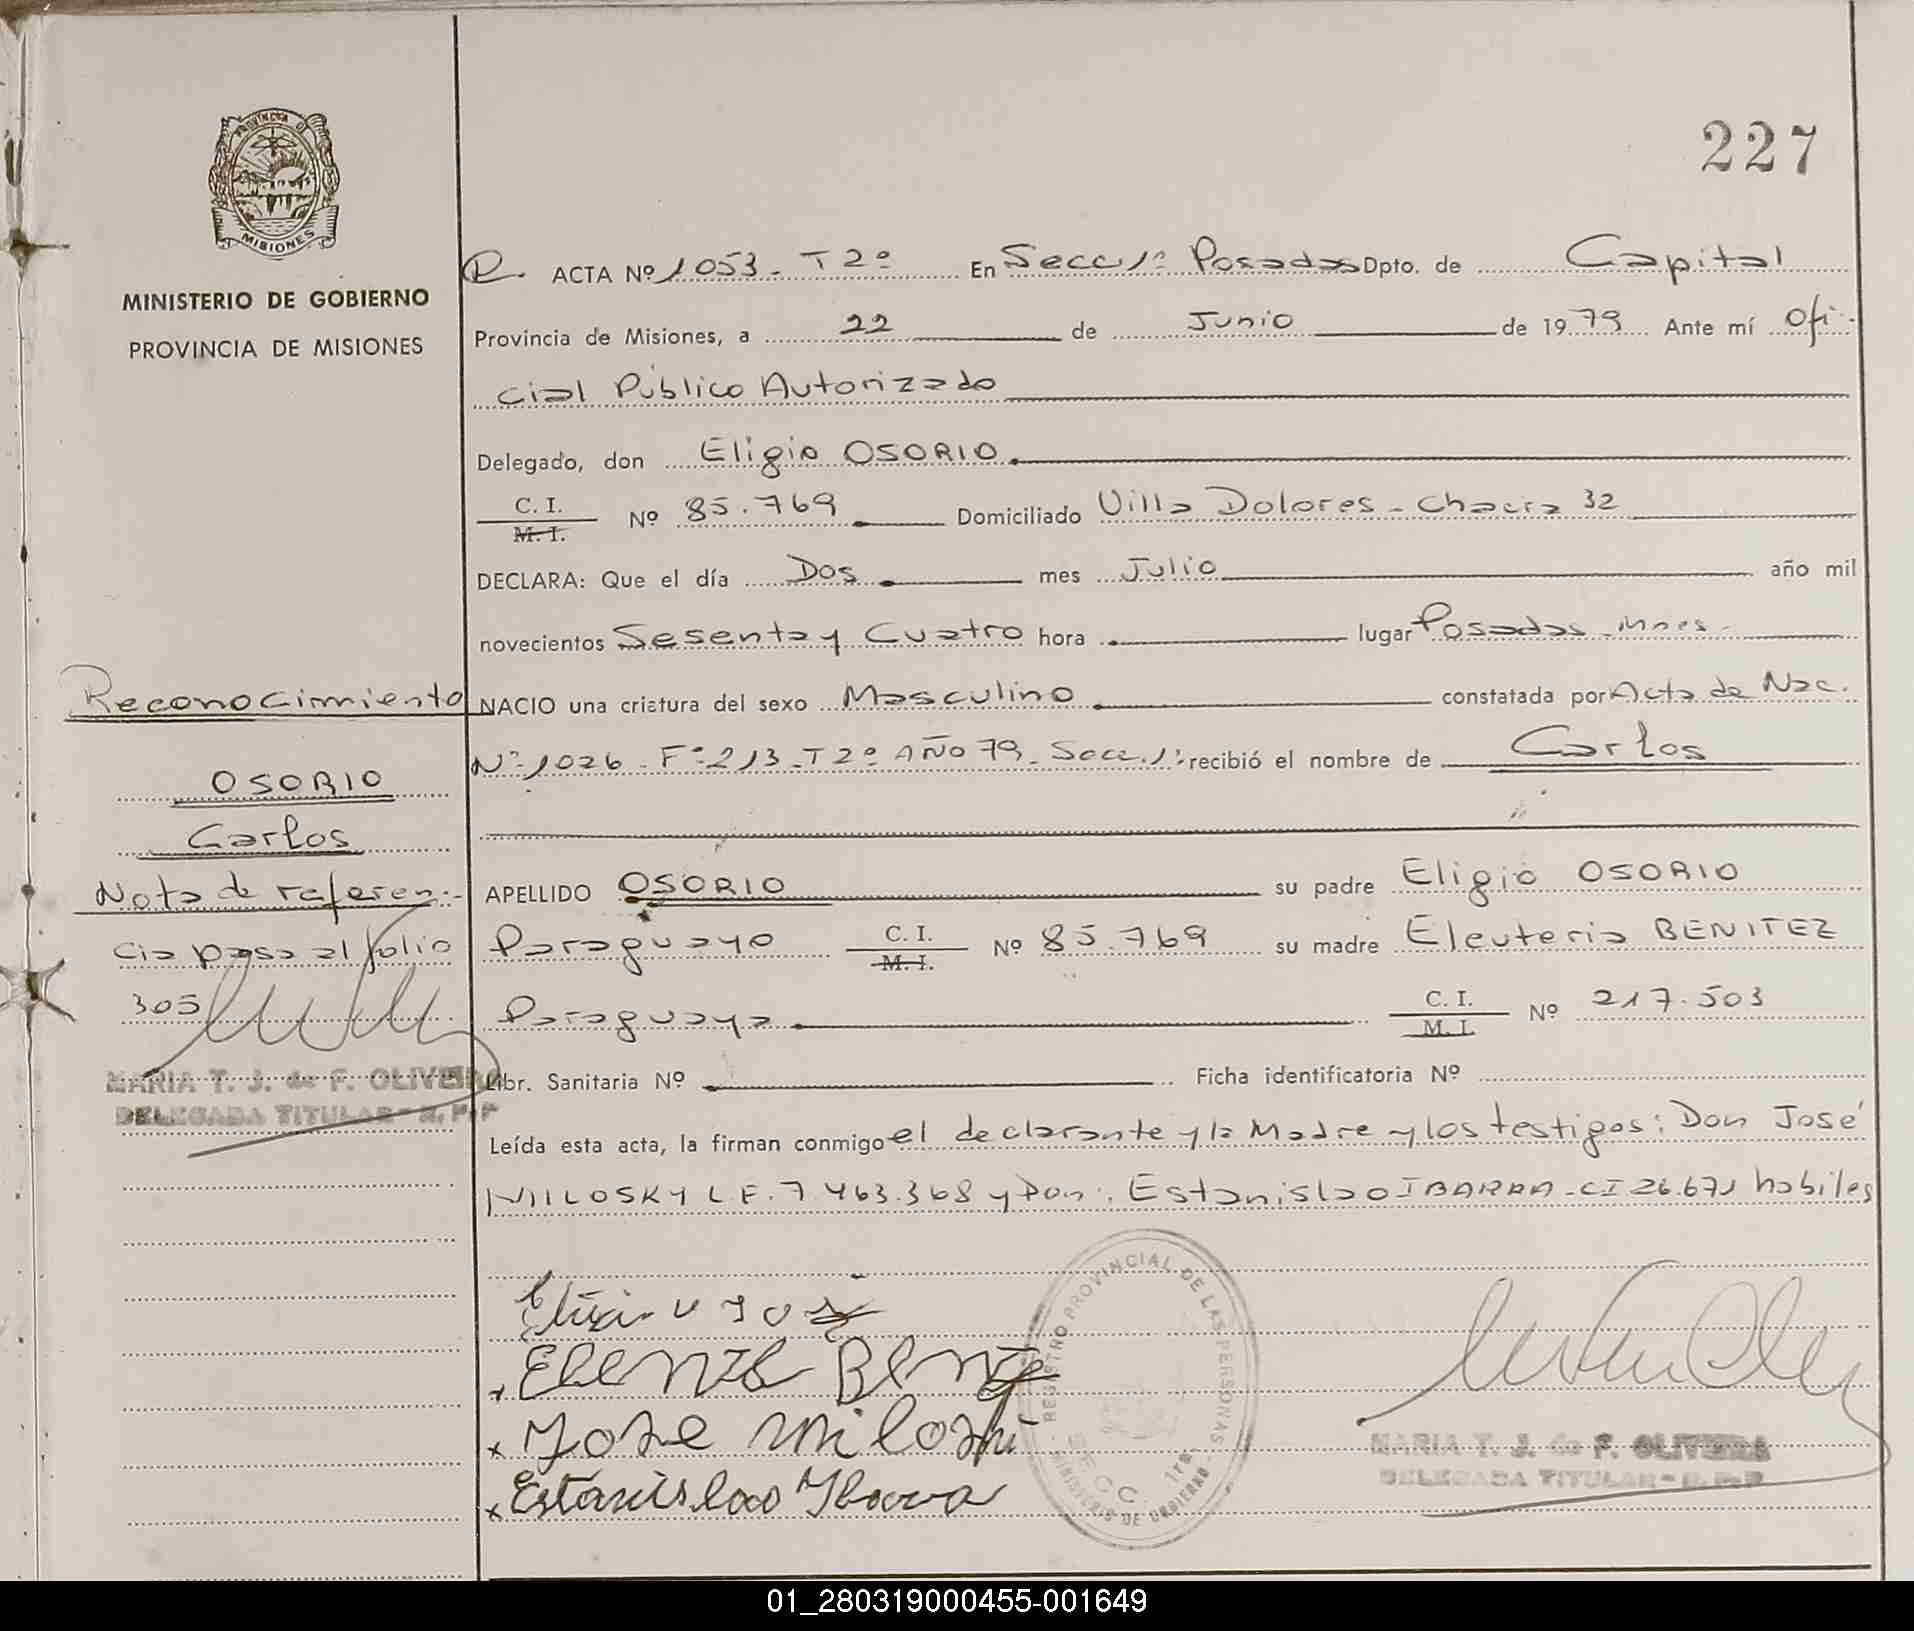 227
PROVINCIA DE
MISIONES
MINISTERIO DE GOBIERNO
PROVINCIA DE MISIONES
ACTA Nº 1053 - T 2º En Secc 1ª Posadas Dpto. de Capital
Provincia de Misiones, a 22 de Junio de 1979 Ante mí Ofi-
cial Público Autorizado
Delegado, don Eligio OSORIO
C. I.
M. I. Nº 85.769 Domiciliado Villa Dolores - Chacra 32
DECLARA: Que el día Dos mes Julio año mil
novecientos Sesenta y Cuatro hora lugar Posadas - Mnes -
Reconocimiento
NACIO una criatura del sexo Masculino constatada por Acta de Nac.
Nº 1026 - Fº 213 - T 2º AÑO 79 - Secc. 1ª recibió el nombre de Carlos
OSORIO
Carlos
Nota de referen-
cia pasa al folio
305
MARIA T. J. de F. OLIVEIRA
DELEGADA TITULAR - R. P. P
APELLIDO OSORIO su padre Eligio OSORIO
Paraguayo C. I.
M. I. Nº 85.769 su madre Eleuteria BENITEZ
Paraguaya C. I.
M. I. Nº 217.503
Libr. Sanitaria Nº Ficha identificatoria Nº
Leída esta acta, la firman conmigo el declarante y la Madre y los testigos: Don José
MILOSKY L E. 7 463.368 y Don: Estanislao IBARRA - CI 26.671 habiles
x Jose Miloski
x Estanislao Ibarra
REGISTRO PROVINCIAL DE LAS PERSONAS
MINISTERIO DE GOBIERNO
SECC. 1ra.
MARIA T. J. de F. OLIVEIRA
DELEGADA TITULAR - R. P. P
01_280319000455-001649